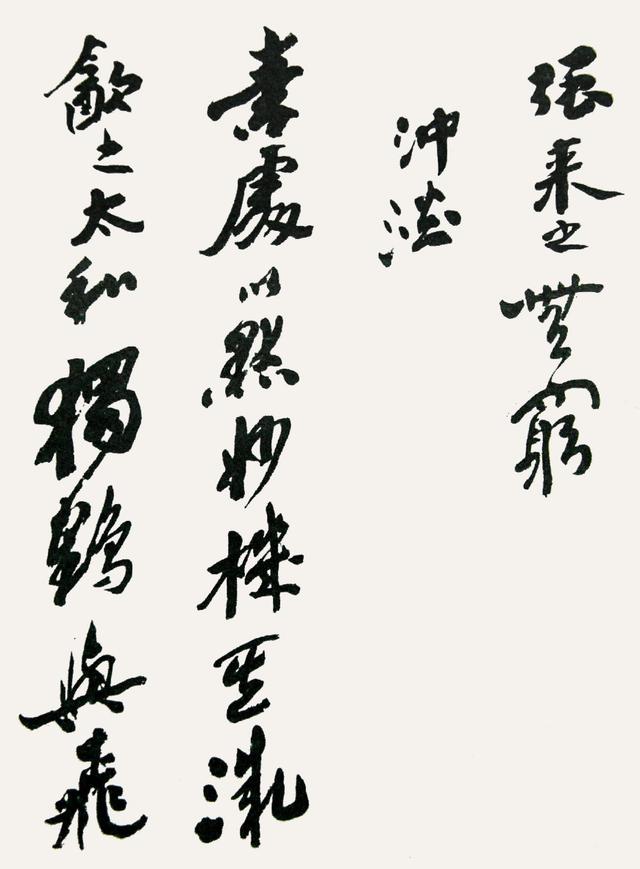 强来之無窮
沖澹
素處以默妙機其微
飲之太和獨鶴與飛